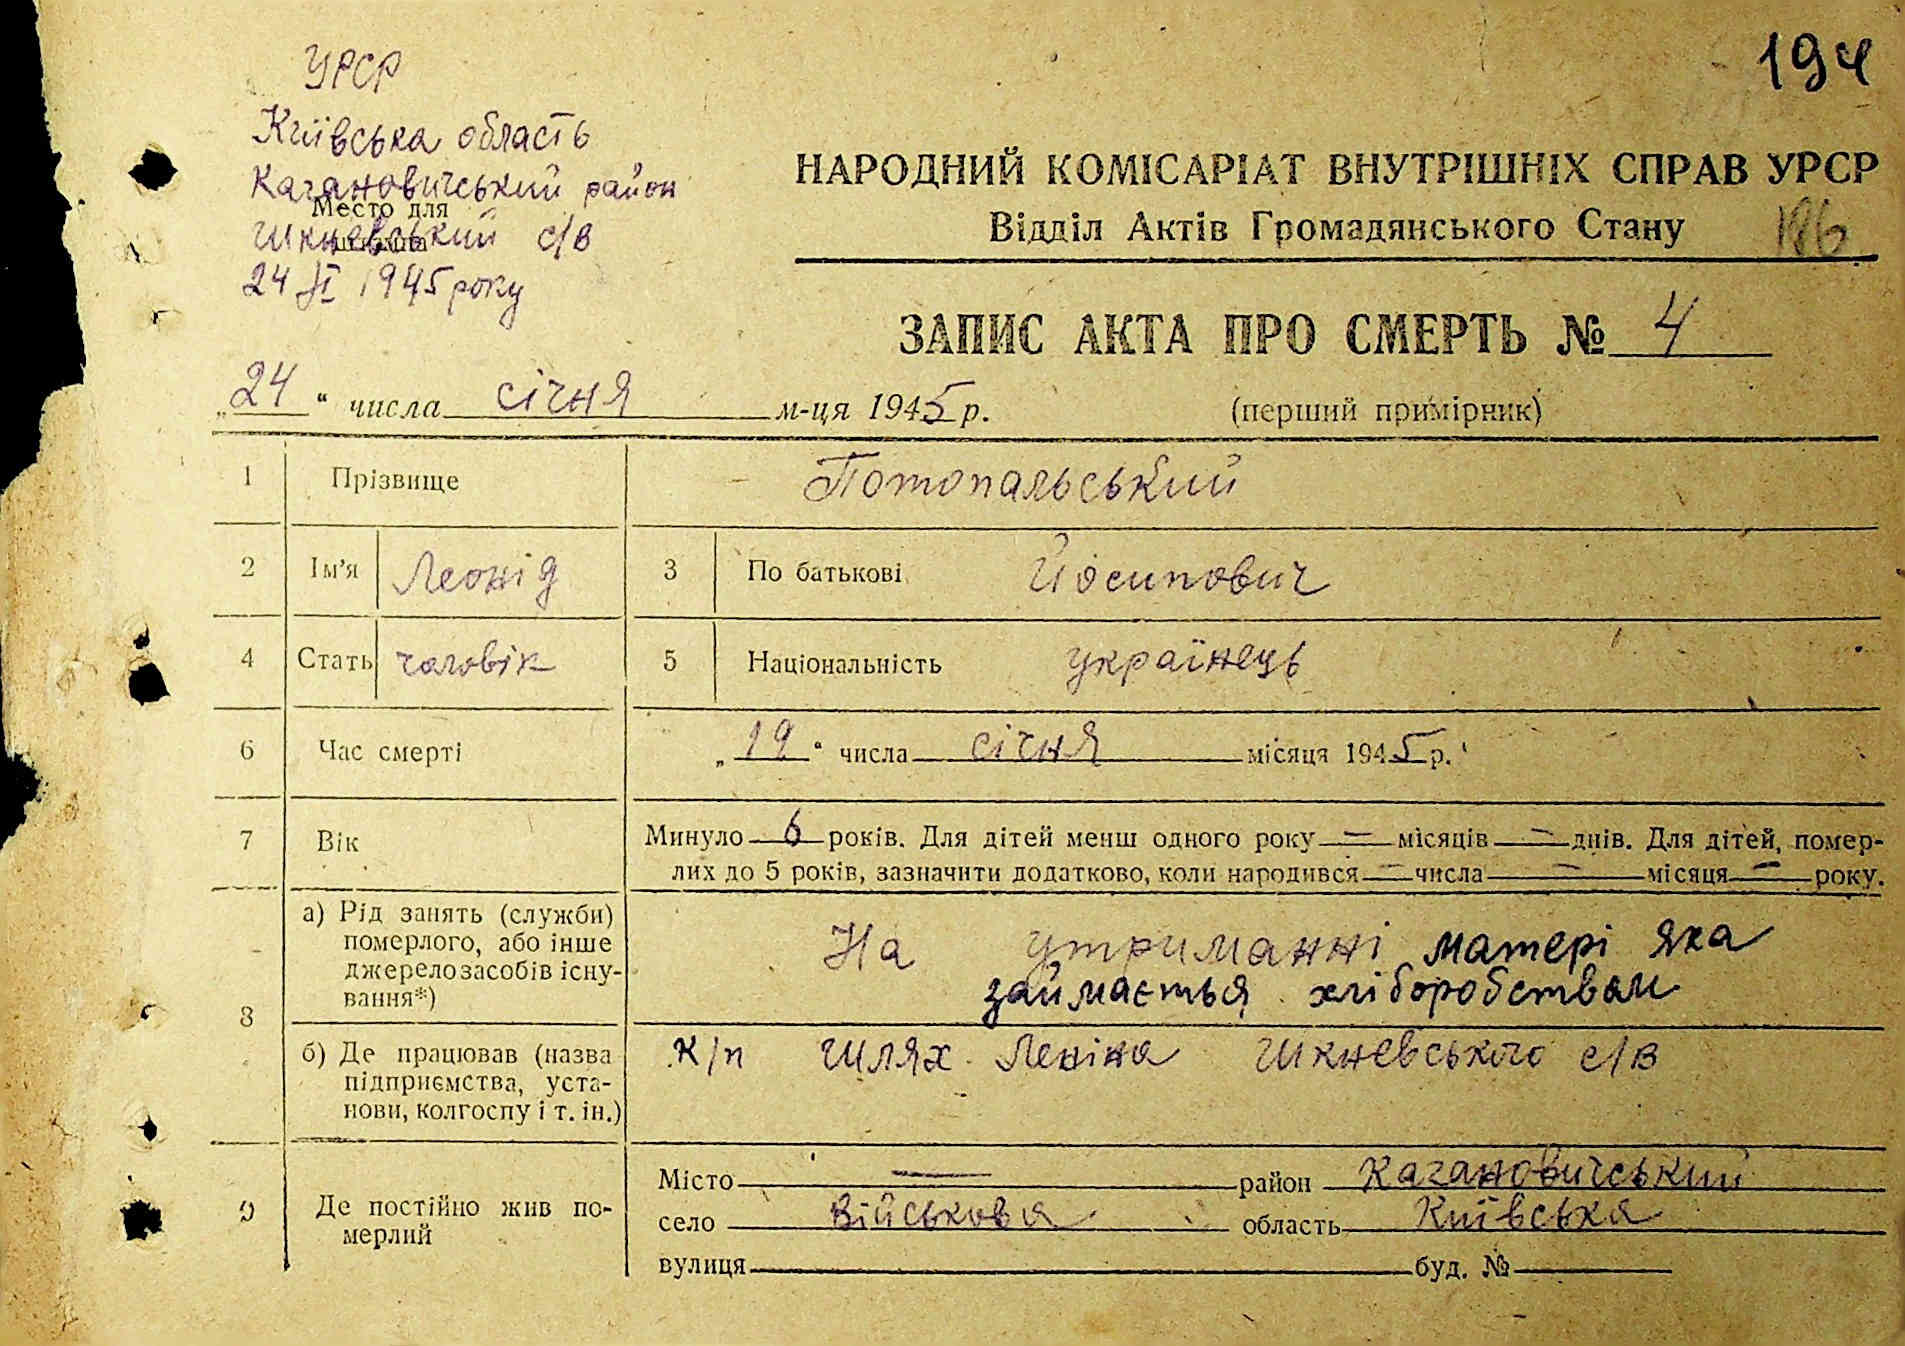 194
УРСР
Київська область
Кагановичський район
Место для
Шкневський с/в
штампа
24 І 1945 року
НАРОДНИЙ КОМІСАРІАТ ВНУТРІШНІХ СПРАВ УРСР
Відділ Актів Громадянського Стану 186
ЗАПИС АКТА ПРО СМЕРТЬ № 4
„24“ числа січня м-ця 1945 р. (перший примірник)
1 Прізвище Потопальський
2 Ім'я Леонід 3 По батькові Йосипович
4 Стать чоловік 5 Національність українець
6 Час смерті „19“ числа січня місяця 1945 р.
7 Вік Минуло 6 років. Для дітей менш одного року — місяців — днів. Для дітей, помер-
лих до 5 років, зазначити додатково, коли народився — числа — місяця — року.
8 а) Рід занять (служби)
померлого, або інше
джерело засобів існу-
вання*)
На утриманні матері яка
займається хліборобством
б) Де працював (назва
підприємства, уста-
нови, колгоспу і т. ін.)
к/п Шлях Леніна Шкневського с/в
9 Де постійно жив по-
мерлий
Місто — район Кагановичський
село Військова область Київська
вулиця буд. №